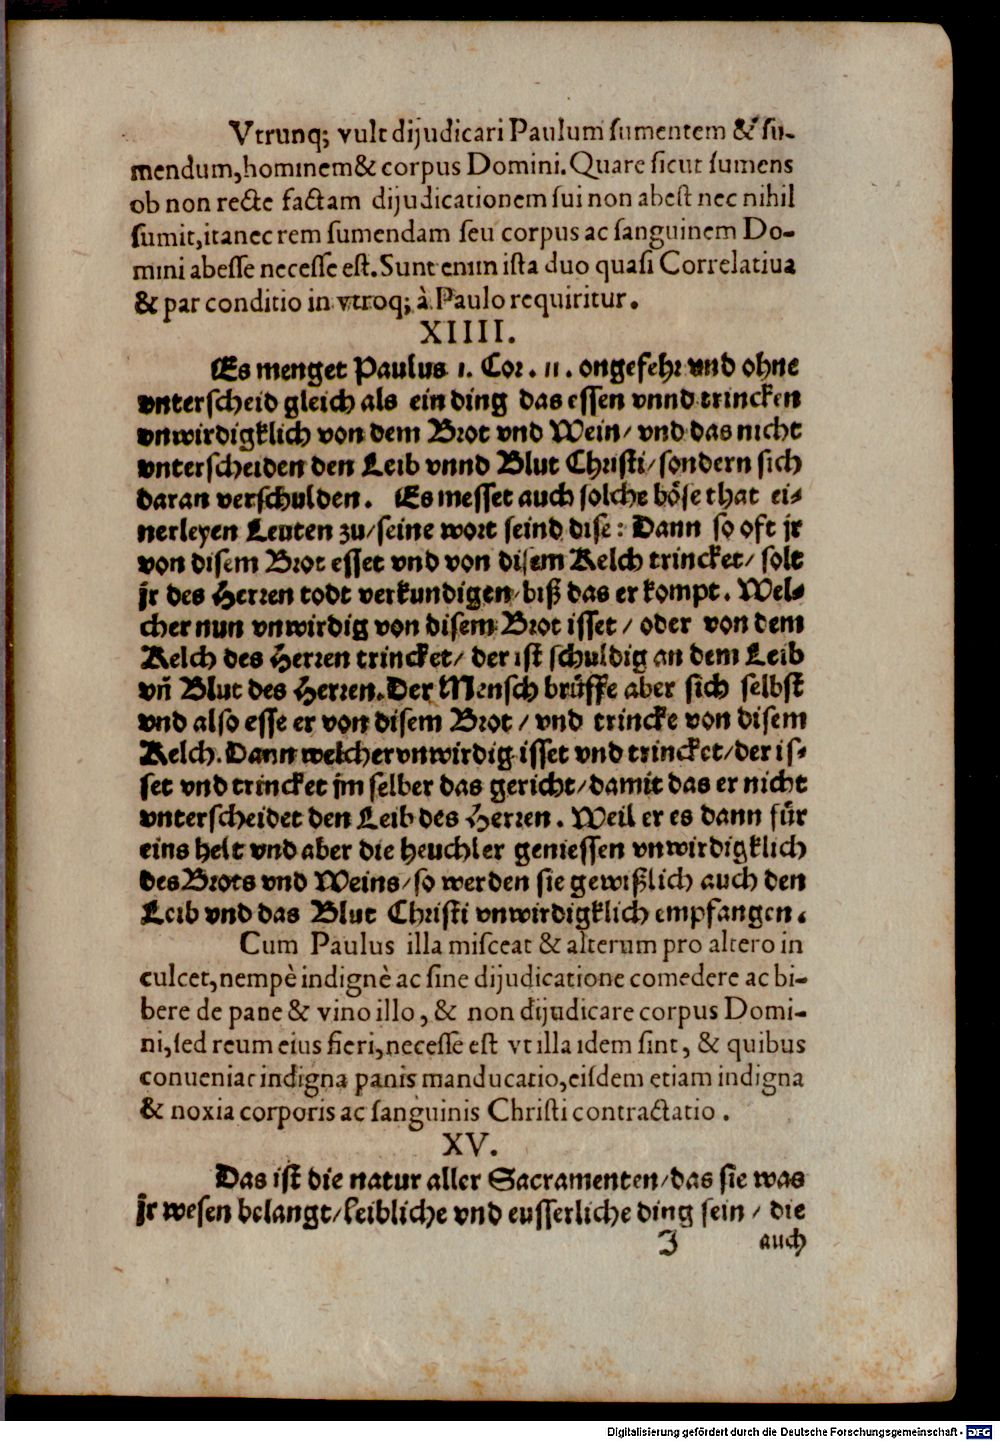 Vtrunq; vult dijudicari Paulum sumentem & su-
mendum, hominem & corpus Domini. Quare sicut sumens
ob non recte factam dijudicationem sui non abest nec nihil
sumit, ita nec rem sumendam seu corpus ac sanguinem Do-
mini abesse necesse est. Sunt enim ista duo quasi Correlatiua
& par conditio in vtroq; à Paulo requiritur.
XIIII.
Es menget Paulus 1. Cor. 11. ongefehr vnd ohne
vnterscheid gleich als ein ding das essen vnnd trincken
vnwirdigklich von dem Brot vnd Wein/ vnd das nicht
vnterscheiden den Leib vnnd Blut Christi/ sondern sich
daran verschulden. Es messet auch solche böse that ei-
nerleyen Leuten zu/ seine wort seind dise: Dann so oft jr
von disem Brot esset vnd von disem Kelch trincket/ solt
jr des Herren todt verkundigen/ biß das er kompt. Wel-
cher nun vnwirdig von disem Brot isset/ oder von dem
Kelch des Herren trincket/ der ist schuldig an dem Leib
vñ Blut des Herren. Der Mensch brüffe aber sich selbst
vnd also esse er von disem Brot/ vnd trincke von disem
Kelch. Dann welcher vnwirdig isset vnd trincket/ der is-
set vnd trincket jm selber das gericht/ damit das er nicht
vnterscheidet den Leib des Herren. Weil er es dann für
eins helt vnd aber die heuchler geniessen vnwirdigklich
des Brots vnd Weins/ so werden sie gewißlich auch den
Leib vnd das Blut Christi vnwirdigklich empfangen.
Cum Paulus illa misceat & alterum pro altero in
culcet, nempè indignè ac sine dijudicatione comedere ac bi-
bere de pane & vino illo, & non dijudicare corpus Domi-
ni, sed reum eius fieri, necesse est vt illa idem sint, & quibus
conueniat indigna panis manducatio, eisdem etiam indigna
& noxia corporis ac sanguinis Christi contractatio.
XV.
Das ist die natur aller Sacramenten/ das sie was
jr wesen belangt/ leibliche vnd eusserliche ding sein/ die
J auch
Digitalisierung gefördert durch die Deutsche Forschungsgemeinschaft - DFG